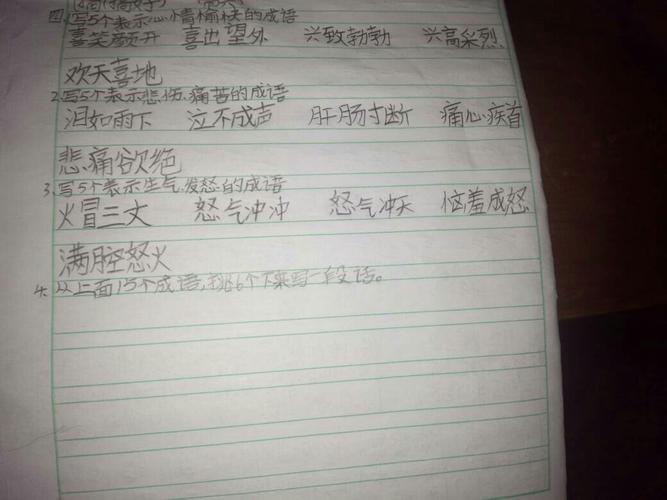 四.写5个表示心情愉快的成语
喜笑颜开 喜出望外 兴致勃勃 兴高采烈
欢天喜地
2.写5个表示悲伤、痛苦的成语
泪如雨下 泣不成声 肝肠寸断 痛心疾首
悲痛欲绝
3.写5个表示生气、发怒的成语
火冒三丈 怒气冲冲 怒气冲天 恼羞成怒
满腔怒火
4.从上面15个成语,挑6个下来写一段话。